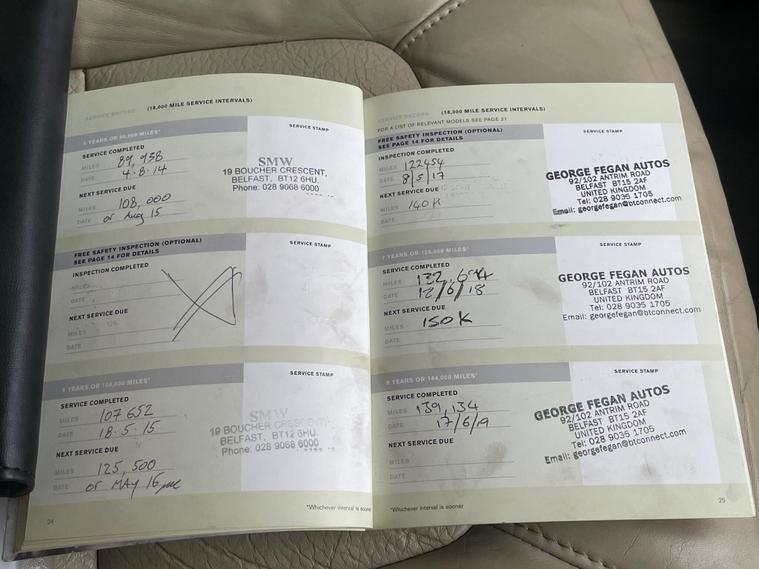 SERVICE RECORD (18,000 MILE SERVICE INTERVALS)
5 YEARS OR 90,000 MILES*
SERVICE COMPLETED
MILES 89,938
DATE 4.8.14
NEXT SERVICE DUE
MILES 108,000
DATE or Aug 15
SERVICE STAMP
SMW
19 BOUCHER CRESCENT,
BELFAST, BT12 6HU.
Phone: 028 9068 6000
FREE SAFETY INSPECTION (OPTIONAL)
SEE PAGE 14 FOR DETAILS
INSPECTION COMPLETED
MILES
DATE
NEXT SERVICE DUE
MILES
DATE
SERVICE STAMP
6 YEARS OR 108,000 MILES*
SERVICE COMPLETED
MILES 107652
DATE 18.5.15
NEXT SERVICE DUE
MILES 125,500
DATE or MAY 16
SERVICE STAMP
SMW
19 BOUCHER CRESCENT,
BELFAST, BT12 6HU.
Phone: 028 9068 6000
*Whichever interval is sooner
24
SERVICE RECORD (18,000 MILE SERVICE INTERVALS)
FOR A LIST OF RELEVANT MODELS SEE PAGE 21
FREE SAFETY INSPECTION (OPTIONAL)
SEE PAGE 14 FOR DETAILS
INSPECTION COMPLETED
MILES 122454
DATE 8/5/17
NEXT SERVICE DUE
MILES 140K
DATE
SERVICE STAMP
GEORGE FEGAN AUTOS
92/102 ANTRIM ROAD
BELFAST BT15 2AF
UNITED KINGDOM
Tel: 028 9035 1705
Email: georgefegan@btconnect.com
7 YEARS OR 126,000 MILES*
SERVICE COMPLETED
MILES
DATE 12/6/18
NEXT SERVICE DUE
MILES 150K
DATE
SERVICE STAMP
GEORGE FEGAN AUTOS
92/102 ANTRIM ROAD
BELFAST BT15 2AF
UNITED KINGDOM
Tel: 028 9035 1705
Email: georgefegan@btconnect.com
8 YEARS OR 144,000 MILES*
SERVICE COMPLETED
MILES 139,134
DATE 17/6/19
NEXT SERVICE DUE
MILES
DATE
SERVICE STAMP
GEORGE FEGAN AUTOS
92/102 ANTRIM ROAD
BELFAST BT15 2AF
UNITED KINGDOM
Tel: 028 9035 1705
Email: georgefegan@btconnect.com
*Whichever interval is sooner
25